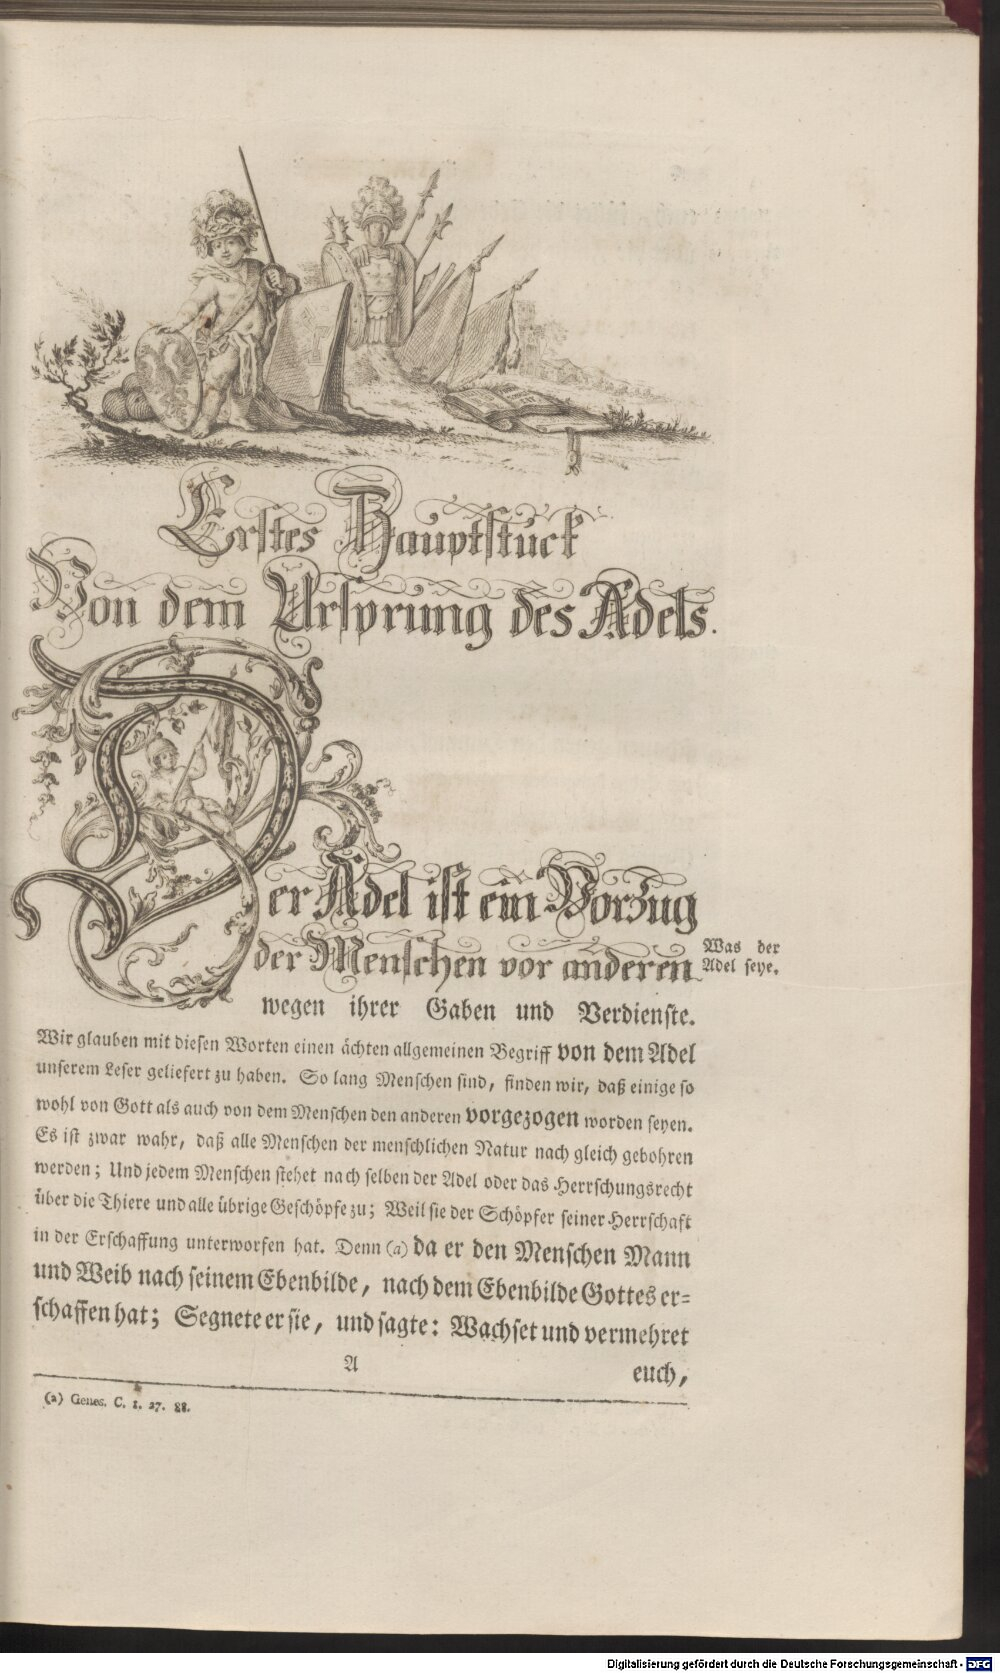 Erstes Hauptstuck
Von dem Ursprung des Adels.
Der Adel ist ein Vorzug
der Menschen vor anderen
Was der
Adel seye.
wegen ihrer Gaben und Verdienste.
Wir glauben mit diesen Worten einen ächten allgemeinen Begriff von dem Adel
unserem Leser geliefert zu haben. So lang Menschen sind, finden wir, daß einige so
wohl von Gott als auch von dem Menschen den anderen vorgezogen worden seyen.
Es ist zwar wahr, daß alle Menschen der menschlichen Natur nach gleich gebohren
werden; Und jedem Menschen stehet nach selben der Adel oder das Herrschungsrecht
über die Thiere und alle übrige Geschöpfe zu; Weil sie der Schöpfer seiner Herrschaft
in der Erschaffung unterworfen hat. Denn (a) da er den Menschen Mann
und Weib nach seinem Ebenbilde, nach dem Ebenbilde Gottes er=
schaffen hat; Segnete er sie, und sagte: Wachset und vermehret
A
euch,
(a) Genes. C. 1. 27. 28.
Digitalisierung gefördert durch die Deutsche Forschungsgemeinschaft - DFG